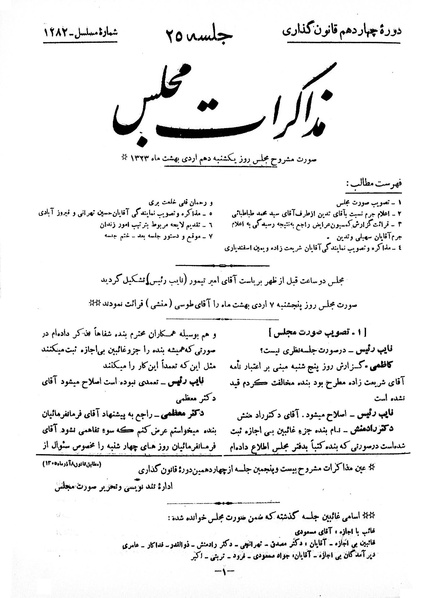 دورهٔ چهاردهم قانون گذاری
جلسه ۲۵
شمارهٔ مسلسل - ۱۲۸۲
مذاکرات مجلس
صورت مشروح مجلس روز یکشنبه دهم اردی بهشت ماه ۱۳۲۳ *
فهرست مطالب :
۱ - تصویب صورت مجلس
۲ - اعلام جرم نسبت بآقای تدین ازطرف آقای سید محمد طباطبائی
۳ - قرائت گزارش کمیسیون عرایض راجع به نتیجه رسیدگی به اعلام
جرم آقایان سهیلی و تدین
۴ - مذاکره و تصویب نمایندگی آقایان شریعت زاده ویمین اسفندیاری
و رحمان قلی خلعت بری
۵ - مذاکره و تصویب نمایندگی آقایان حسین تهرانی و فیروز آبادی
۶ - تقدیم لایحه مربوط بترتیب امور زندان
۷ - موقع و دستور جلسه بعد - ختم جلسه
مجلس دو ساعت قبل از ظهر بریاست آقای امیر تیمور (نایب رئیس) تشکیل گردید
صورت مجلس روز پنجشنبه ۷ اردی بهشت ماه را آقای طوسی (منشی) قرائت نمودند **
[ ۱ - تصویب صورت مجلس ]
نایب رئیس - درصورت جلسه نظری نیست؟
کاظمی - گزارش روز پنج شنبه مبنی بر اعتبار نامه
آقای شریعت زاده مطرح بود بنده مخالفت کردم قید
نشده است
نایب رئیس - اصلاح میشود . آقای دکتر راد منش
دکتر رادمنش - نام بنده جزو غائبین بی اجازه ذکر
شده است درصورتی که بنده کتباً بدفتر مجلس اطلاع داده ام
و هم بوسیله همکاران محترم بنده شفاهاً تذکر داده ام در
صورتی که همیشه بنده را جزو غائبین بی اجازه ثبت میکنند
مثل این که تعمداً این کار را میکنند
نایب رئیس - تعمدی نبوده است اصلاح میشود آقای
دکتر معظمی
دکتر معظمی - راجع به پیشنهاد آقای فرمانفرمائیان
بنده میخواستم عرض کنم که سوء تفاهمی نشود آقای
فرمانفرمائیان روز های چهار شنبه را مخصوص سئوال از
* عین مذاکرات مشروح بیست و پنجمین جلسه از چهاردهمین دوره قانون گذاری
(مطابق قانون ۸ آذر ماه ۱۳۰۵)
اداره تند نویسی و تحریر صورت مجلس
** اسامی غائبین جلسه گذشته که ضمن صورت مجلس خوانده شده :
غائب با اجازه - آقای مسعودی
غائبین بی اجازه - آقایان : دکتر مصدق - تهرانچی - دکتر رادمنش - ذوالقدر - فداکار - عامری
دیر آمدگان بی اجازه - آقایان : جواد مسعودی - فرود - تربتی - اکبر
- ۱ -